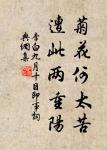 菊花何太苦
遭此兩重陽
李白九月十日即事詞
典網集